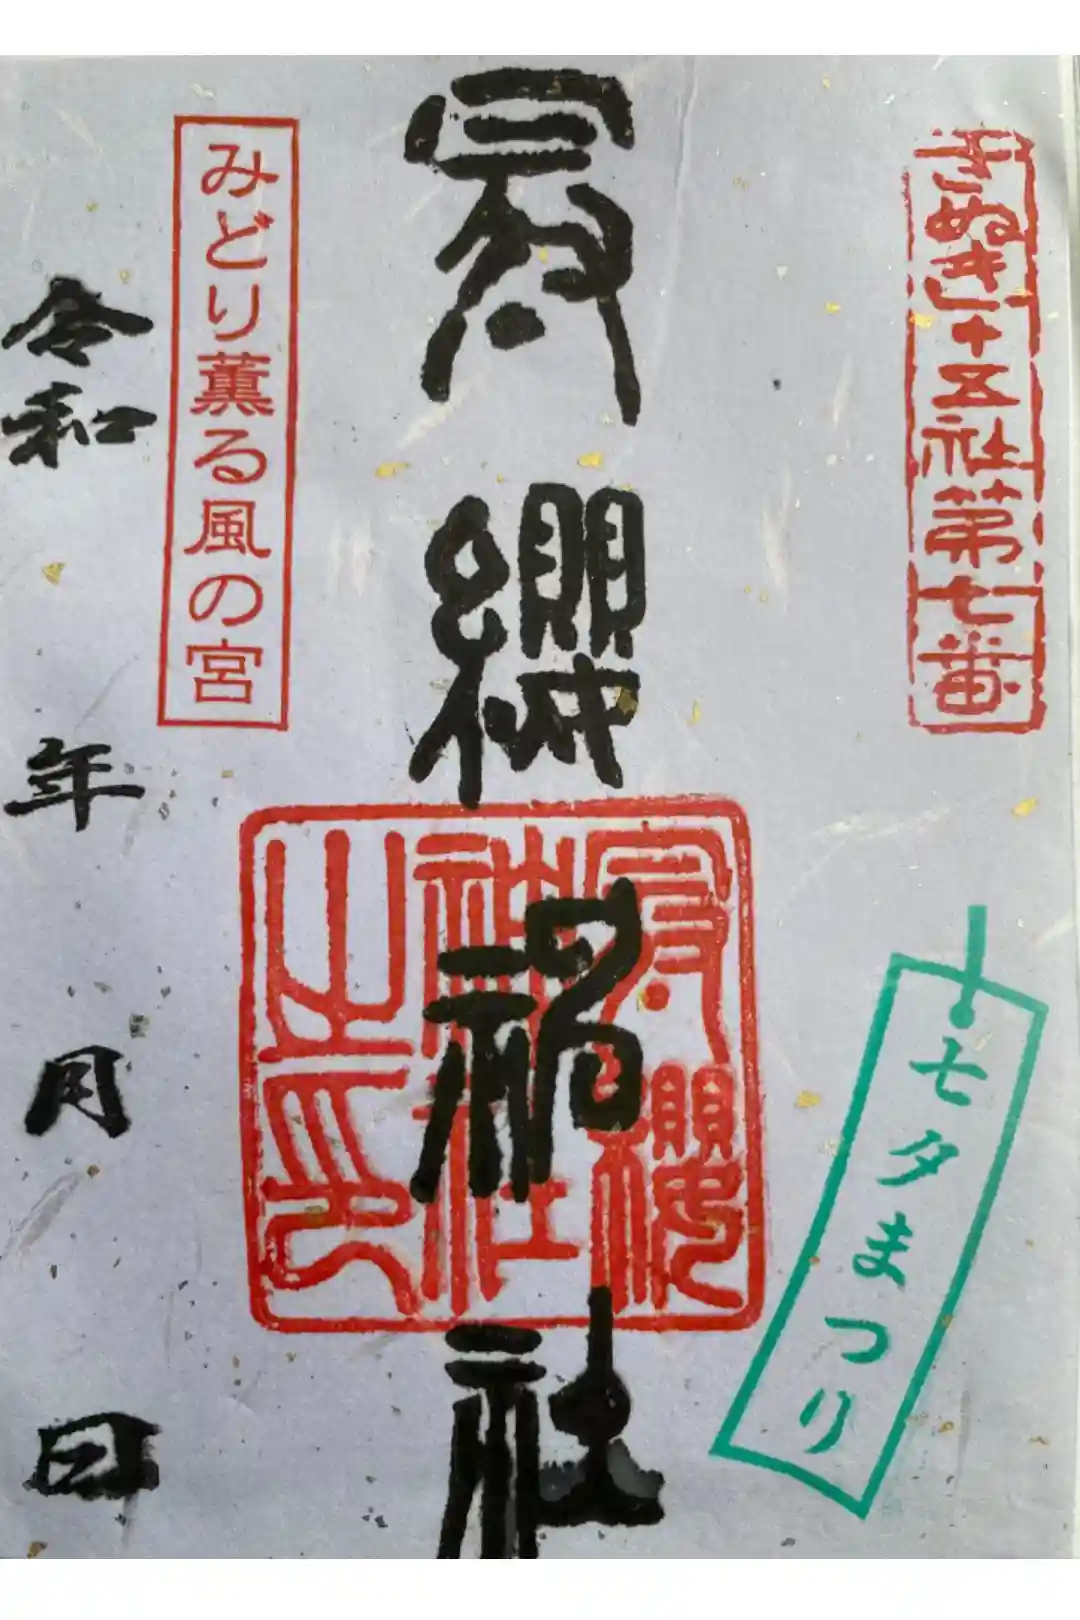 さぬき十五社第七番
七夕まつり
冠纓神社
冠纓
神社
之印
みどり薫る風の宮
令和 年 月 日